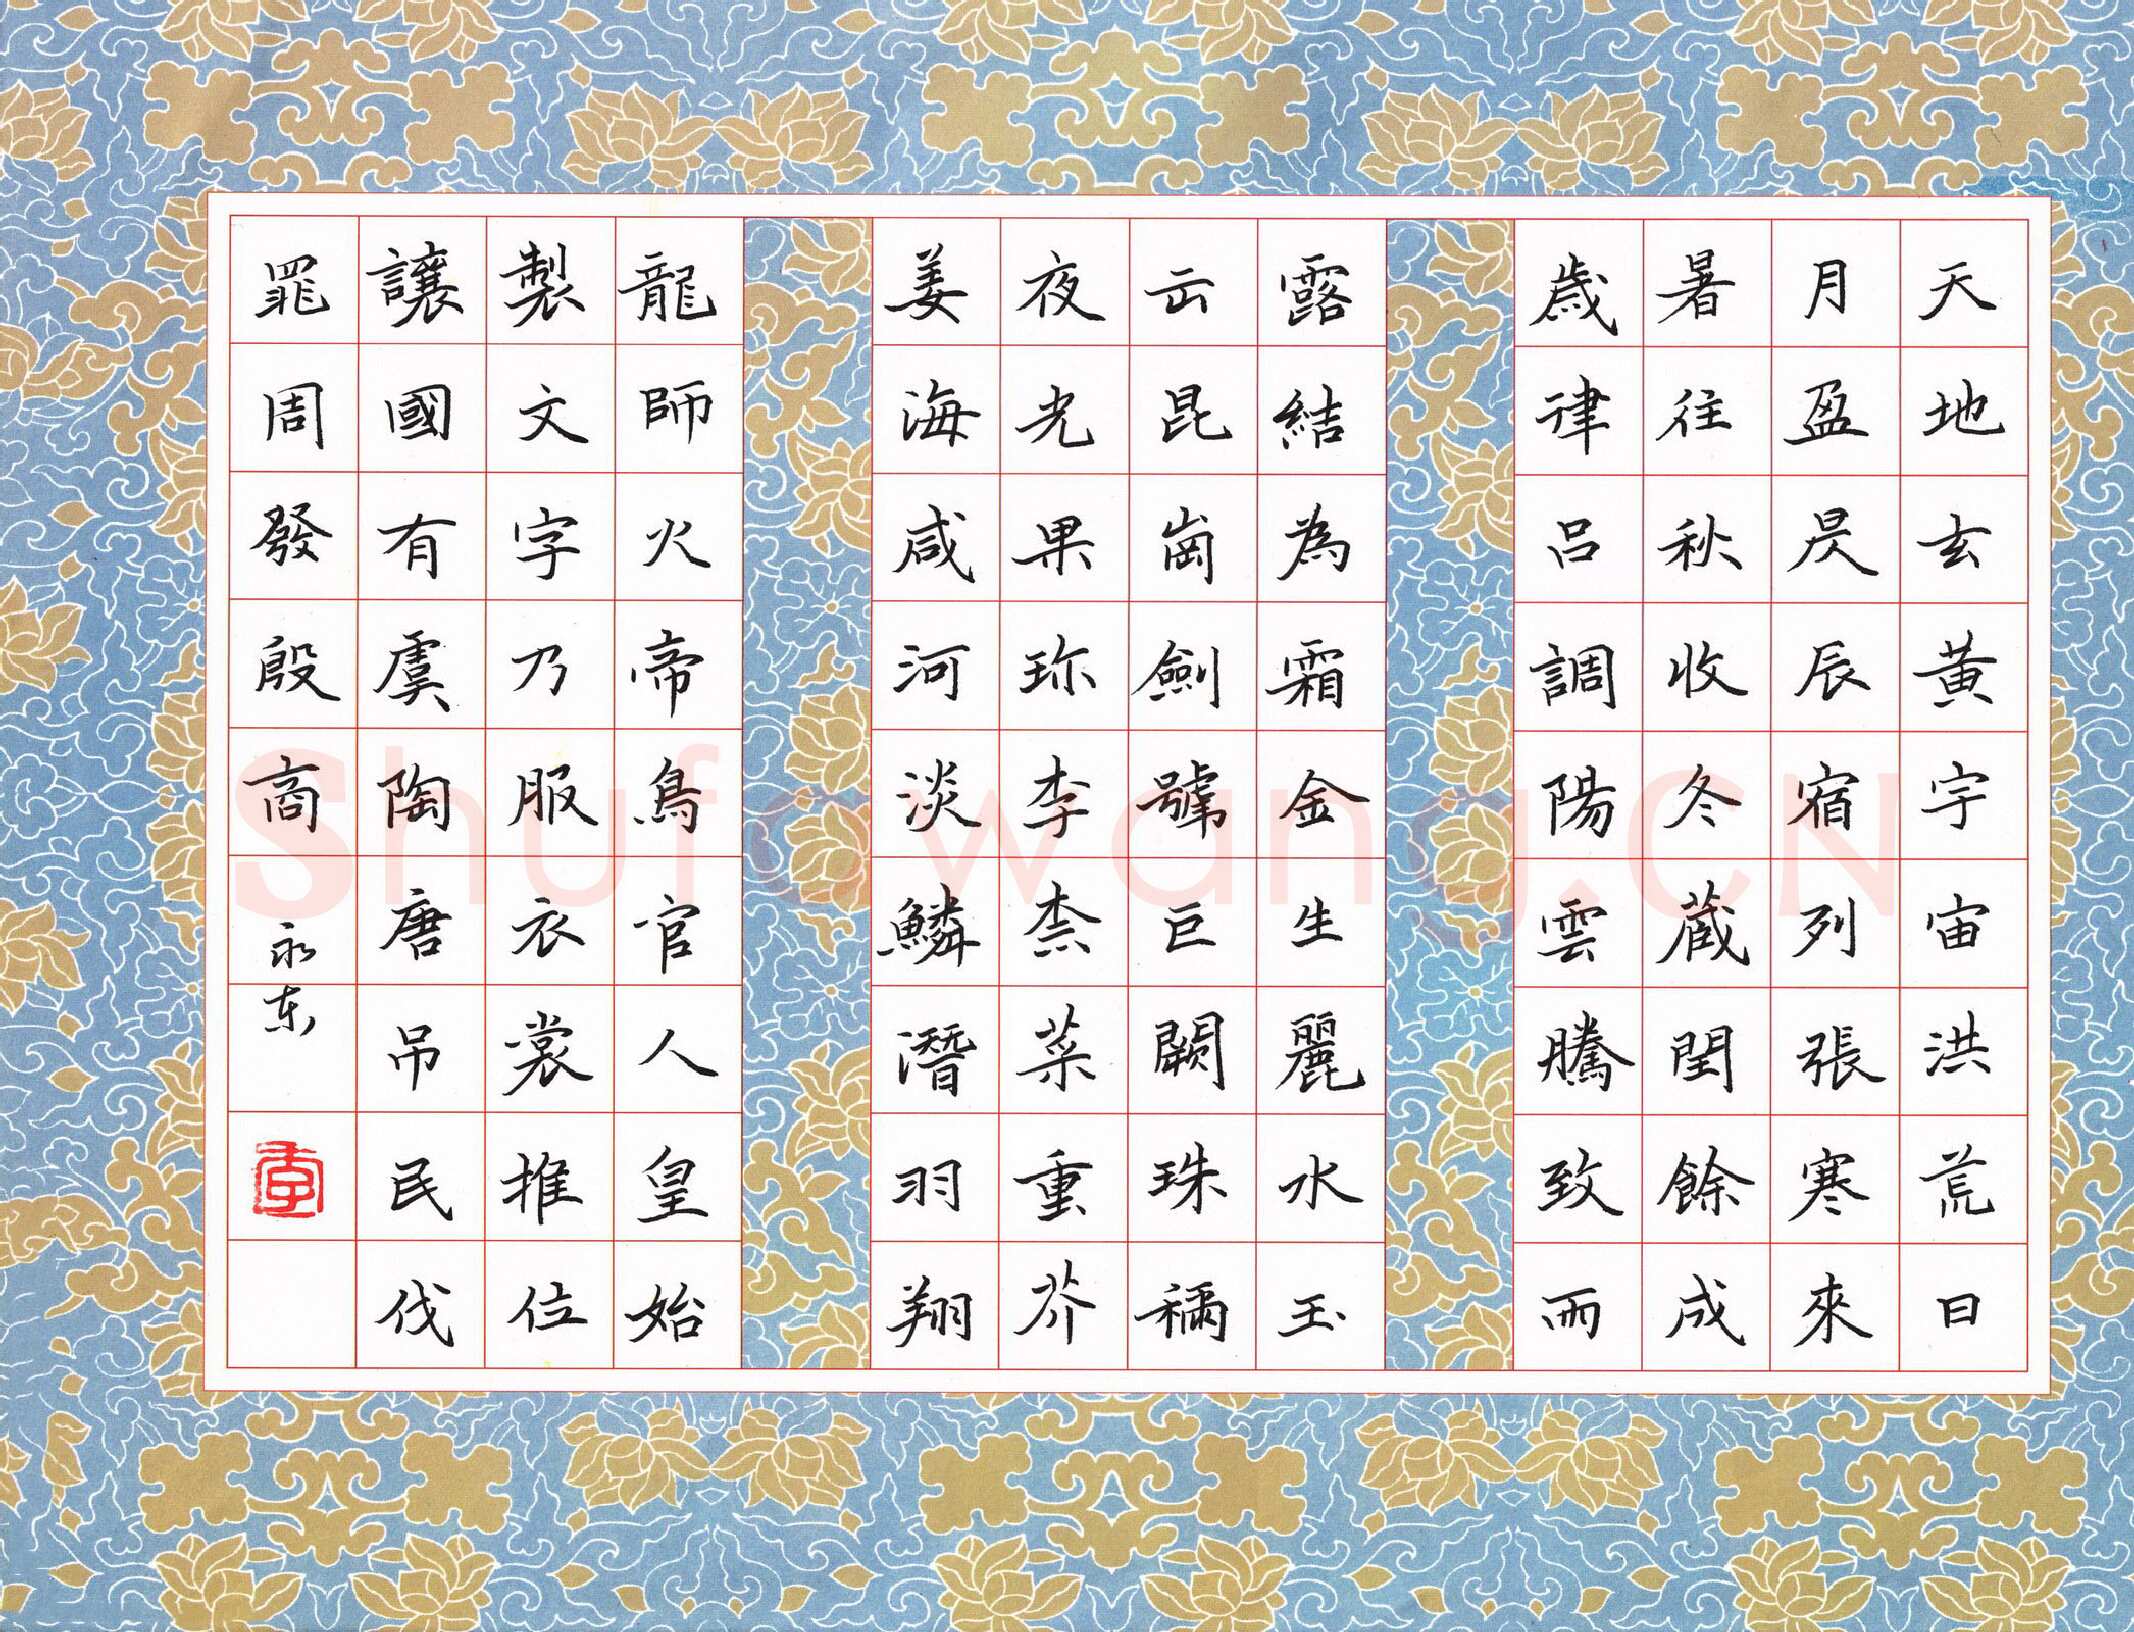 天地玄黃宇宙洪荒日
月盈昃辰宿列張寒來
暑往秋收冬蔵閏餘成
歲律呂調陽雲騰致而
露結為霜金生麗水玉
出昆崗劍號巨闕珠稱
夜光果珍李柰菜重芥
姜海咸河淡鱗潛羽翔
龍師火帝鳥官人皇始
製文字乃服衣裳推位
讓國有虞陶唐吊民伐
罪周發殷商
永东
李
Shufawang.CN